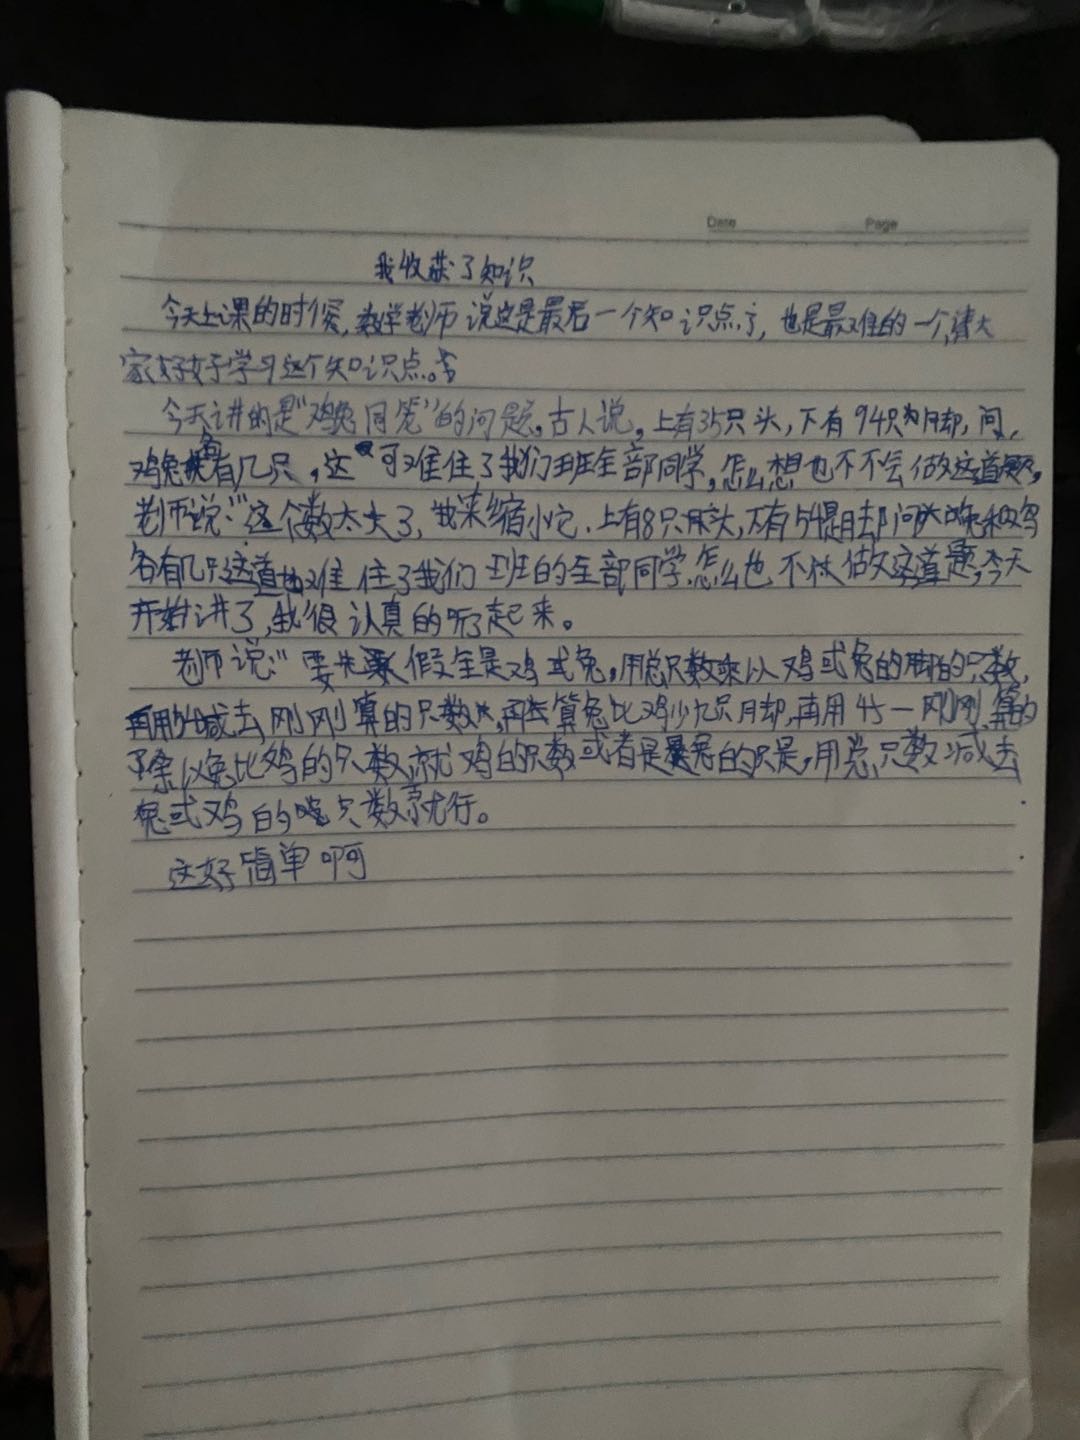 Date Page
我收获了知识
今天上课的时候,数学老师说这是最后一个知识点了,也是最难的一个,请大
家好好学习这个知识点。
今天讲的是“鸡兔同笼”的问题。古人说,上有35只头,下有94只脚,问,
鸡兔各有几只,这可难住了我们班全部同学,怎么想也不不会做这道题,
老师说:“这个数太大了,我来缩小它,上有8只头,下有54只脚问兔和鸡
各有几只这道也难住了我们班的全部同学,怎么也不做这道题,今天
开始讲了,我很认真的听了起来。
老师说:“要先假全是鸡或兔,用总只数乘以鸡或兔的脚的只数,
再用54减去刚刚算的只数,再去算兔比鸡少几只脚,再用45一刚刚算的
除以兔比鸡的只数就鸡的只数或者是兔的只是,用总只数减去
兔或鸡的只数就行。
这好简单啊